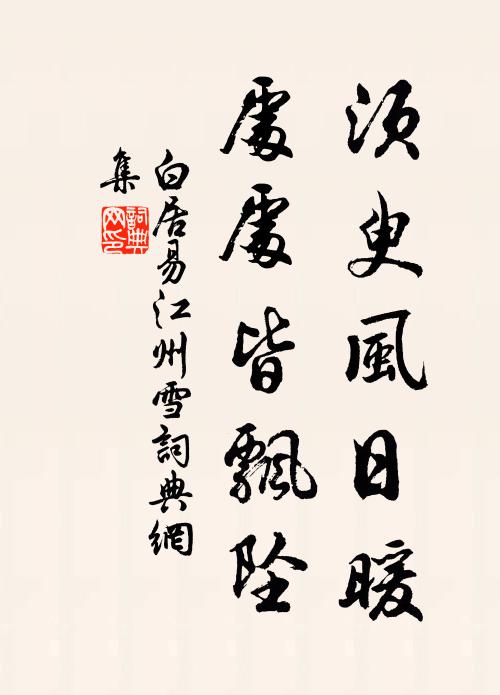 須臾風日暖
處處皆飄墜
白居易江州雪詞典網
集
詞典
网印